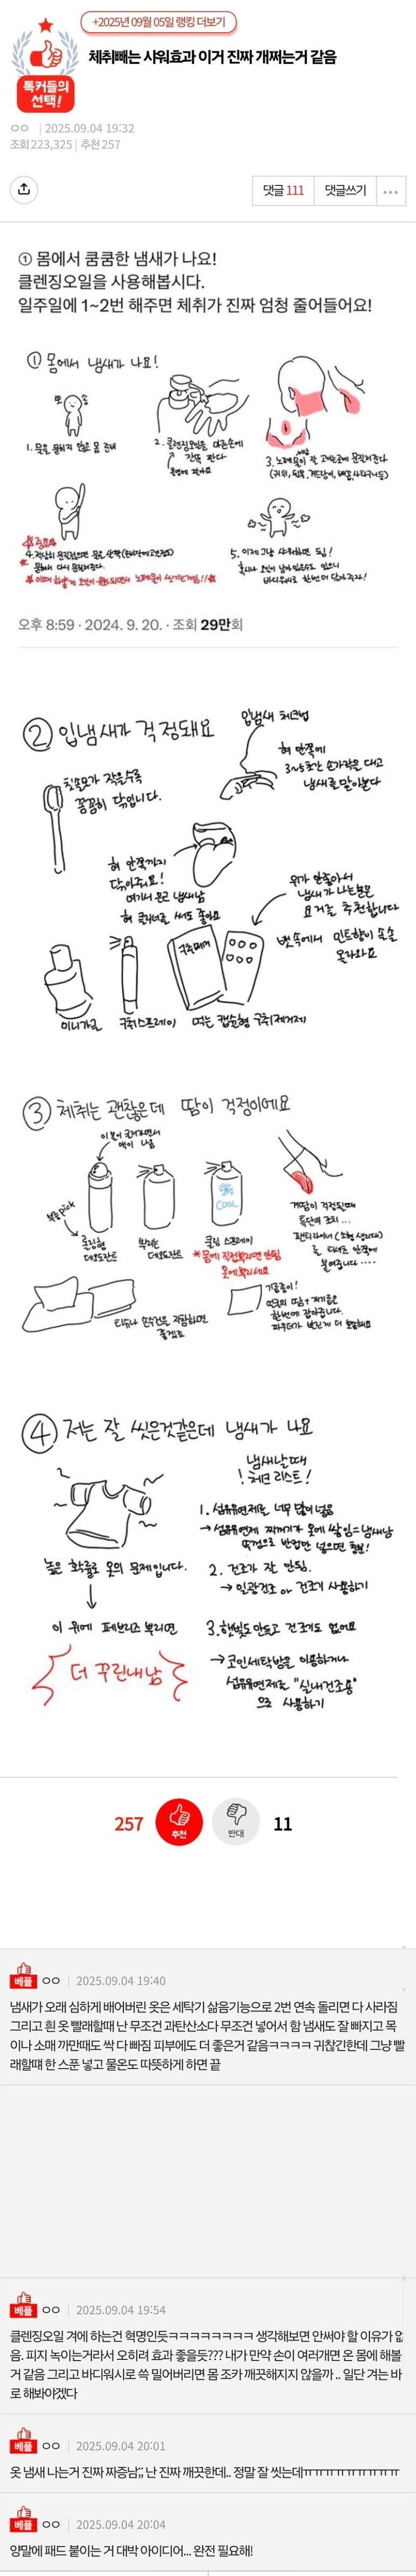 +2025년 09월 05일 랭킹 더보기
톡커들의
선택!
체취빼는 샤워효과 이거 진짜 개쩌는거 같음
ㅇㅇ | 2025.09.04 19:32
조회 223,325 | 추천 257
댓글 111 댓글쓰기
① 몸에서 쿰쿰한 냄새가 나요!
클렌징오일을 사용해봅시다.
일주일에 1~2번 해주면 체취가 진짜 엄청 줄어들어요!
① 몸에서 냄새가 나요!
뽀 송
1. 물을 묻히지 않은 몸 준비
2. 클렌징오일을 마른손에
간득 짠다
3. 노폐물이 잘 고이는곳에 문질러준다
5. 이제 그냥 샤워하면 됨!
바디워시로 한번 더 닦아주자!
오후 8:59 · 2024. 9. 20. · 조회 29만회
② 입냄새가 걱정돼요
입냄새 체크법
혀 안쪽에
3~5초간 손가락을 대고
냄새를 맡아본다
칫솔모가 작을수록
꼼꼼히 닦입니다.
혀 안쪽까지
닦아줘요!
여기서 은근 냄새남
혀 클리너를 써도 좋아요
위가 안좋아서
냄새가 나는분은
요거를 추천합니다
뱃속에서 민트향이 솔솔
올라와요
구취제거
미니가글 구취스프레이 먹는 캡슐형 구취제거제
③ 체취는 괜찮은데 땀이 걱정이에요
롤링형
데오드란트
뿌리는
데오드란트
COOL
쿨링 스프레이
*몸에 직접뿌리면 안됨
옷에뿌리세요
겨땀이 걱정될때
특단의 조치...
티슈나 손수건을 지참하면
좋겠죠
기름종이!
④ 저는 잘 씻은것같은데 냄새가 나요
냄새날때
! 체크 리스트!
높은 확률로 옷의 문제입니다.
이 위에 페브리즈 뿌리면
더 꾸린내남
1. 섬유유연제를 너무 많이 넣음
→ 섬유유연제 찌꺼기가 옷에 쌓임=냄새남
뚜껑으로 반컵만 넣으면 충분!
2. 건조가 잘 안됨.
→ 일광건조 or 건조기 사용하기
3. 햇빛도 안들고 건조기도 없어요
→ 코인세탁방을 이용하거나
섬유유연제를 "실내건조용"
으로 사용하기
257 추천 반대 11
베플 ㅇㅇ | 2025.09.04 19:40
냄새가 오래 심하게 배어버린 옷은 세탁기 삶음기능으로 2번 연속 돌리면 다 사라짐
그리고 흰 옷 빨래할때 난 무조건 과탄산소다 무조건 넣어서 함 냄새도 잘 빠지고 목
이나 소매 까만때도 싹 다 빠짐 피부에도 더 좋은거 같음ㅋㅋㅋㅋ 귀찮긴한데 그냥 빨
래할떄 한 스푼 넣고 물온도 따뜻하게 하면 끝
베플 ㅇㅇ | 2025.09.04 19:54
클렌징오일 겨에 하는건 혁명인듯ㅋㅋㅋㅋㅋㅋㅋㅋ 생각해보면 안써야 할 이유가 없
음. 피지 녹이는거라서 오히려 효과 좋을듯??? 내가 만약 손이 여러개면 온 몸에 해볼
거 같음 그리고 바디워시로 쓱 밀어버리면 몸 조카 깨끗해지지 않을까 .. 일단 겨는 바
로 해봐야겠다
베플 ㅇㅇ | 2025.09.04 20:01
옷 냄새 나는거 진짜 짜증남;; 난 진짜 깨끗한데.. 정말 잘 씻는데ㅠㅠㅠㅠㅠㅠㅠㅠㅠ
베플 ㅇㅇ | 2025.09.04 20:04
양말에 패드 붙이는 거 대박 아이디어... 완전 필요해!